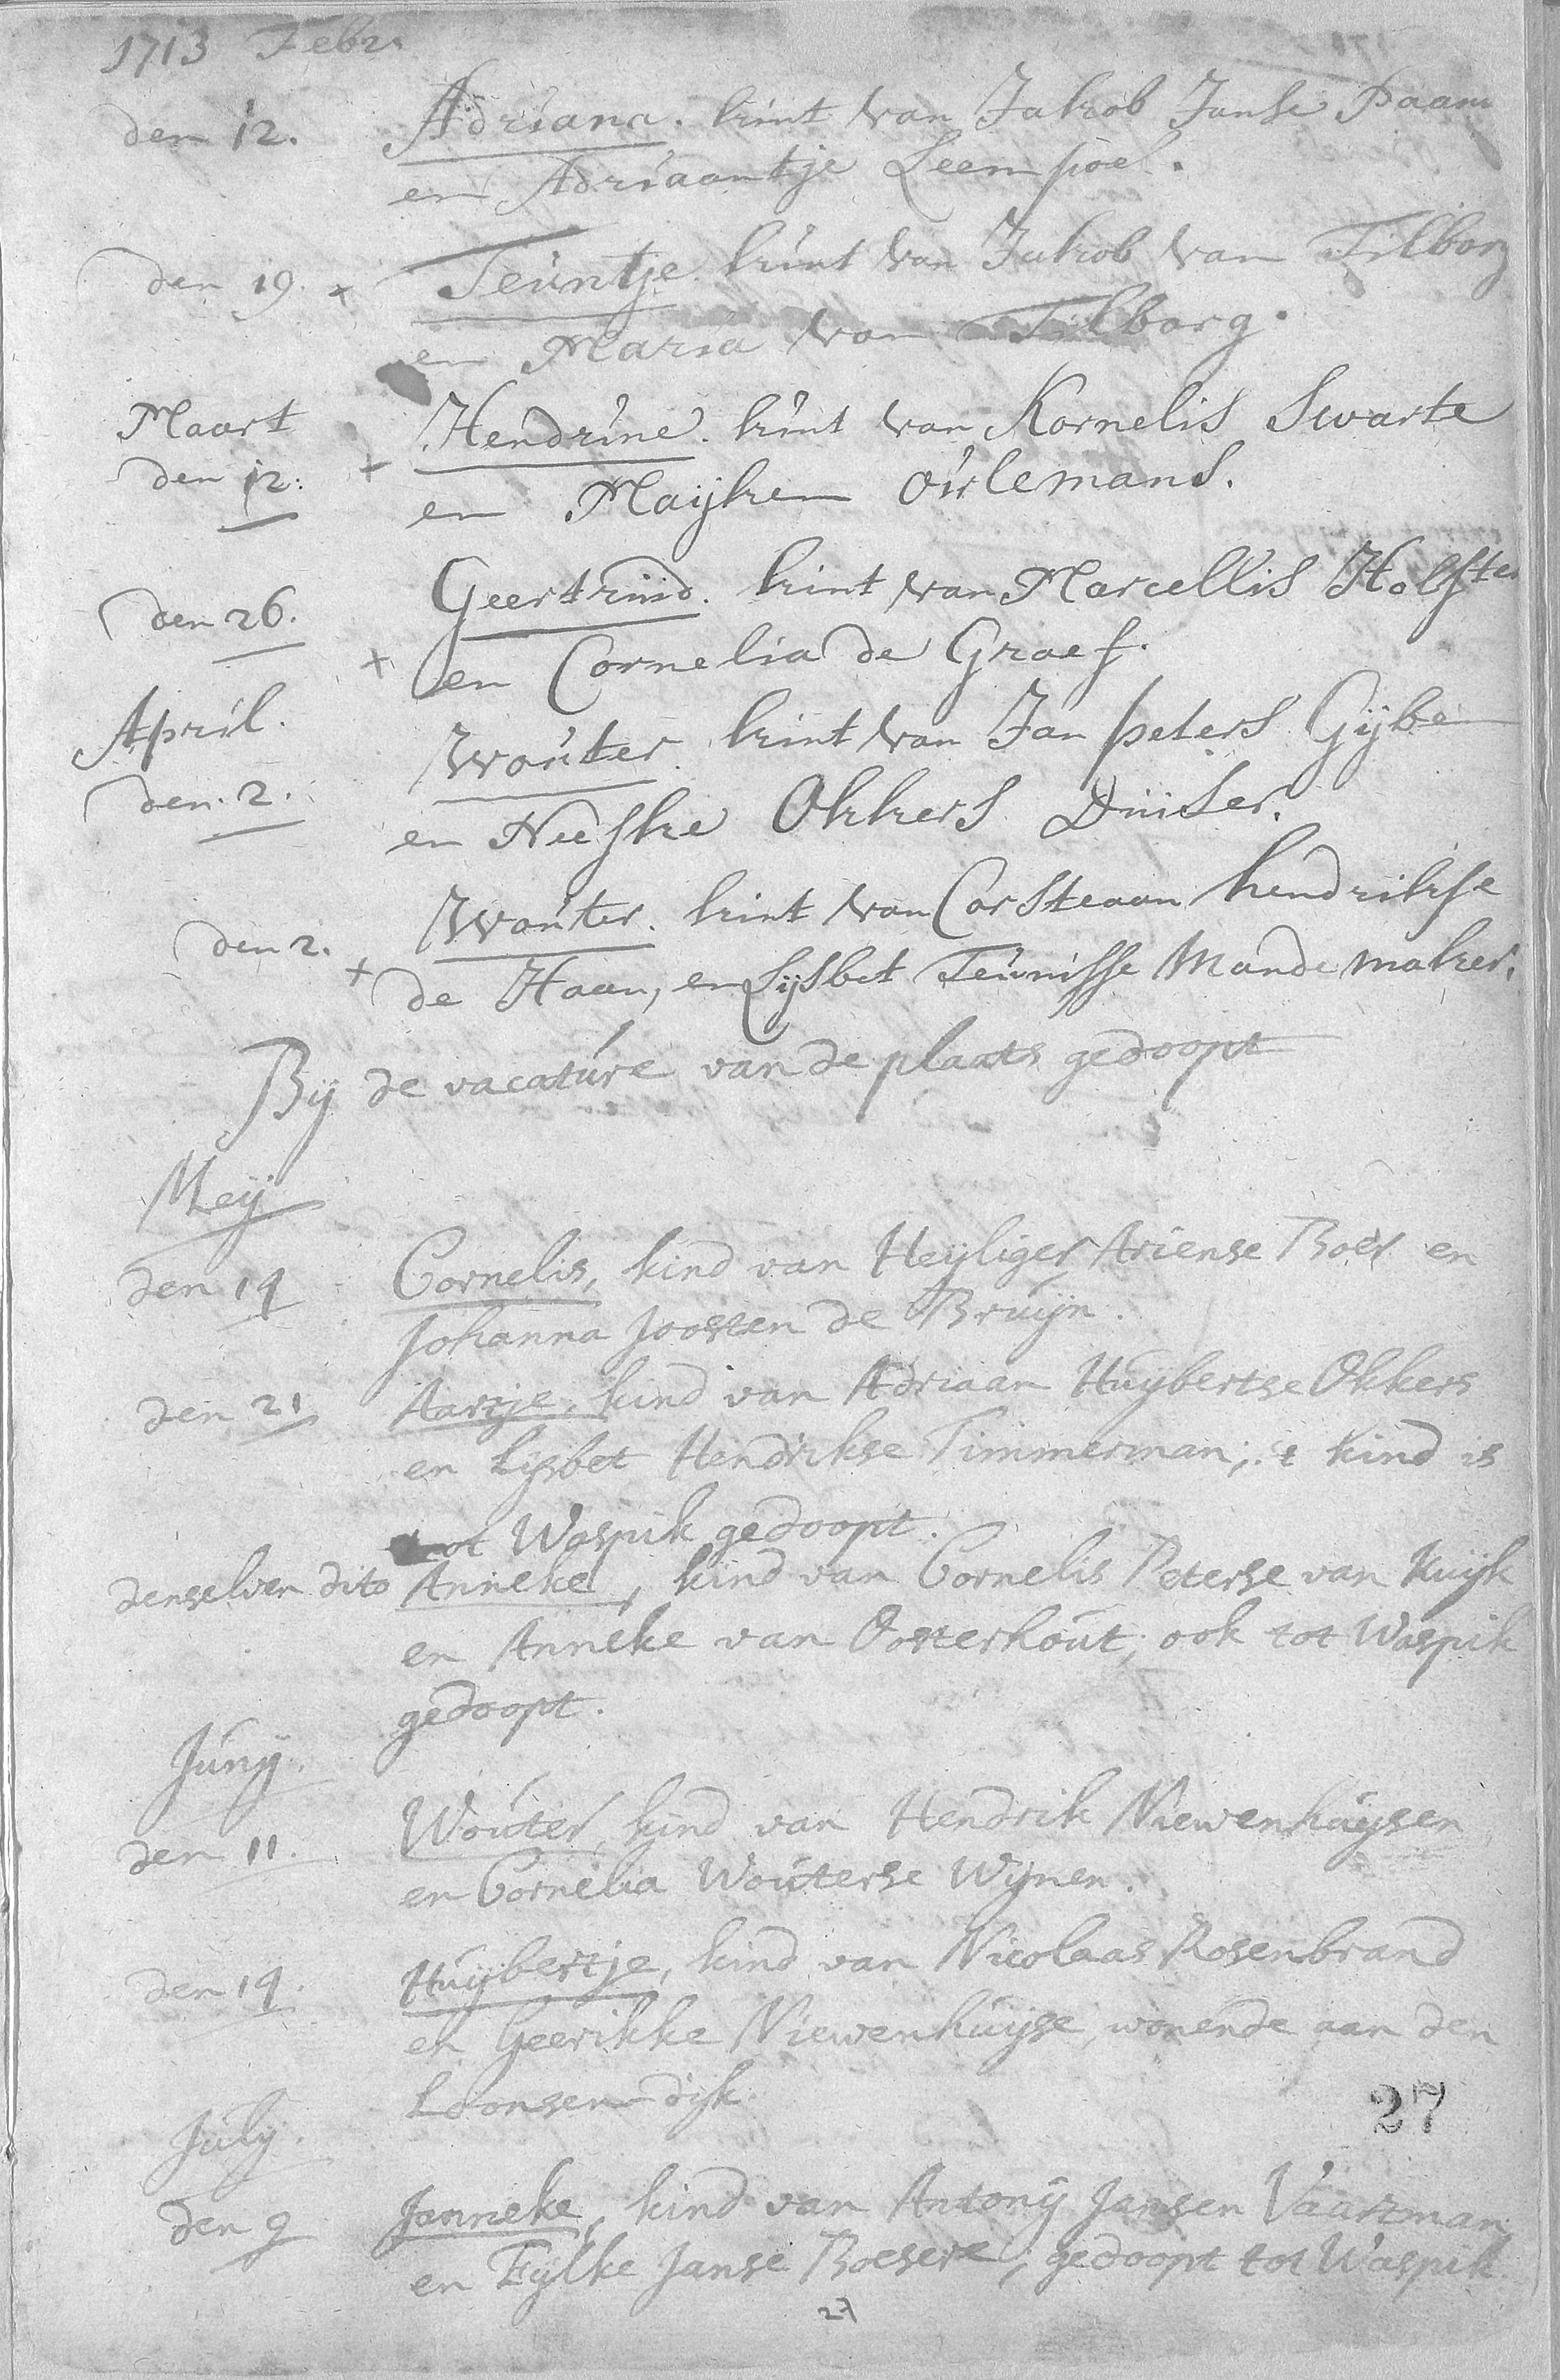 1713 Febr.
den 12. Adriana. kint van Jakob Janse Paam
en Adriaantje Leempoel.
den 19. + Teuntje. kint van Jakob van Tilborg
en Maria van Tilborg.
Maart
den 12. + Hendrine. kint van Kornelis Swarte
en Mayken Oerlemans.
den 26. Geertruid. kint van Marcellis Holster
+ en Cornelia de Graef.
April.
den 2. Wouter. kint van Jan peters Gijben
en Neeske Okkers Duiser.
den 2. Wouter. kint van Corsteaan hendrikse
+ de Haan, en Lijsbet Teunisse Mandemaker.
Bij de vacature van de plaats gedoopt
Meij
den 14 Cornelis, kind van Heyliger Ariense Boer en
Johanna Joosten de Bruijn.
den 21 Aartje, kind van Adriaan Huybertse Okkers
en Lijsbet Hendrikse Timmerman; 't kind is
tot Waspik gedoopt.
denselven dito Anneke, kind van Cornelis Peterse van Kuijk
en Anneke van Oosterhout; ook tot Waspik
gedoopt.
Junij.
den 11. Wouter, kind van Hendrik Niewenhuysen
en Cornelia Wouterse Wijnen.
den 14. Huybertje, kind van Nicolaas Rosenbrand
en Geerikke Niewenhuyse, wonende aan den
Loonsen-dijk
27
July.
den 9 Janneke, kind van Antonij Jansen Vaartman
en Eylke Janse Boesere, gedoopt tot Waspik.
27